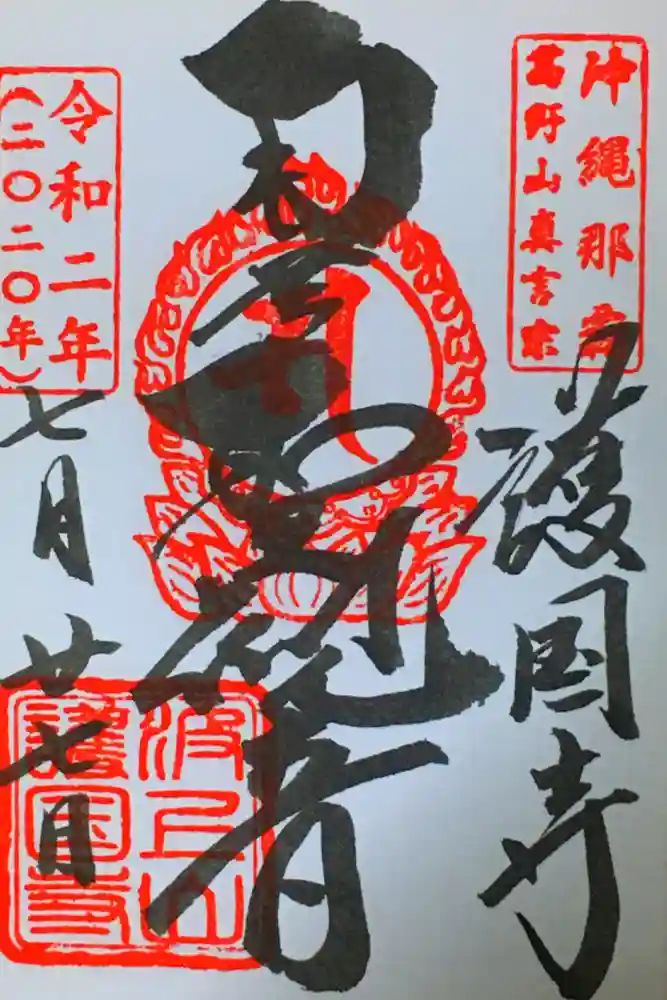 沖縄那覇
高野山真言宗
護国寺
観音
令和二年
(二〇二〇年)
七月廿七日
波上山
護国寺